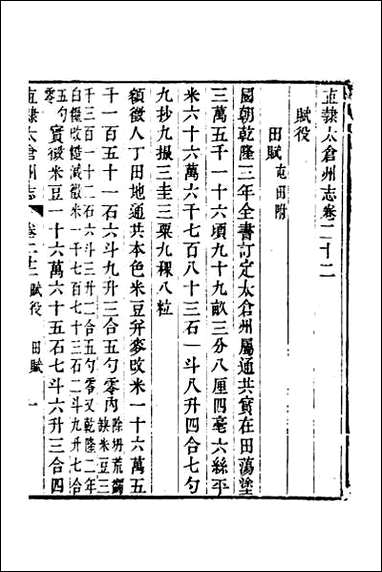 直隸太倉州志卷二十二
賦役
田賦 屯田附
國朝乾隆三年全書訂定太倉州屬通共實在田蕩塗
三萬五千一十六頃九十九畝三分八厘四毫六絲平
米六十六萬六千七百八十三石一斗八升四合七勺
九抄九撮三圭三粟九粿八粒
額徵人丁田地通共本色米豆并麥改米一十六萬五
千一百五十一石六斗九升三合五勺零內除坍荒蠲缺米豆三
千三百一十二石六斗三升二合五勺零又乾隆二年
白糧改糙減徵米一千七百三十三石二斗九升七合
五勺零實徵米豆一十六萬六十五石七斗六升三合四
直隸太倉州志 卷二十二 賦役 田賦 一